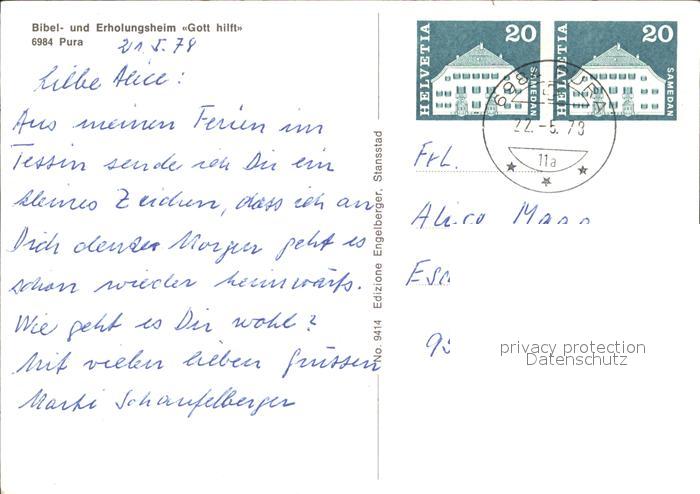 Bibel- und Erholungsheim «Gott hilft»
6984 Pura
21.5.78
Liebe Alice:
Aus meinen Ferien im
Tessin sende ich Dir ein
kleines Zeichen, dass ich an
Dich denke. Morgen geht es
schon wieder heimwärts.
Wie geht es Dir wohl?
Mit vielen lieben Grüssen
Schaufelberger
No. 9414 Edizione Engelberger, Stansstad
HELVETIA 20 SAMEDAN
HELVETIA 20 SAMEDAN
6984 PURA
22.-5.78
11a
Frl.
privacy protection
Datenschutz